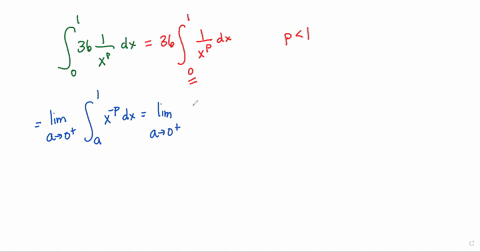 ∫₀¹ 36 1/xᵖ dx = 36 ∫₀¹ 1/xᵖ dx p < 1
= lim a→0⁺ ∫ₐ¹ x⁻ᵖ dx = lim a→0⁺